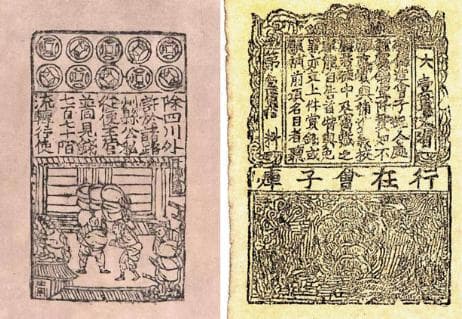 除四川外
許於諸路
州縣公私
從便主管
並同見錢
七百七十陌
流轉行使
大壹貫文省
敕偽造會子犯人處
斬賞錢壹阡貫如不
願支賞與補進義校
尉若徒中及窩藏之
家能自告首特與免
罪亦支上件賞錢或
願補前項名目者聽
第壹佰拾料
行在會子庫